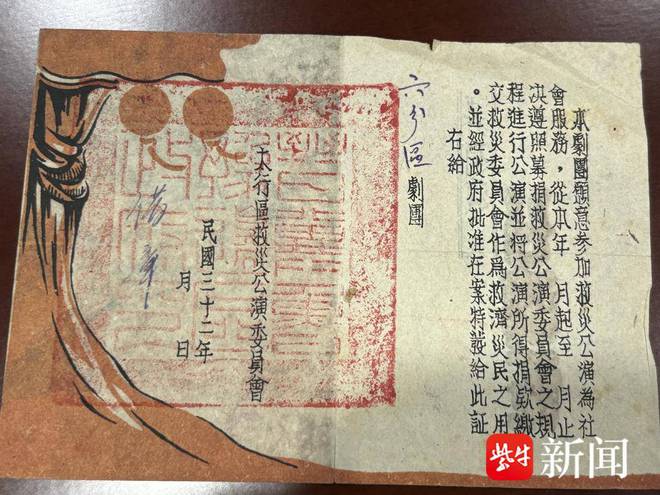 本劇團願意参加救災公演為社
會服務，從本年　月起至　月止
决遵照募捐救災公演委員會之規
程進行公演並將公演所得捐欵繳
交救災委員會作為救濟災民之用
。並經政府批准在案特設給此証
右給
六分區劇團
太行區救災公演委員會
民國三十二年
月　日
紫牛新闻